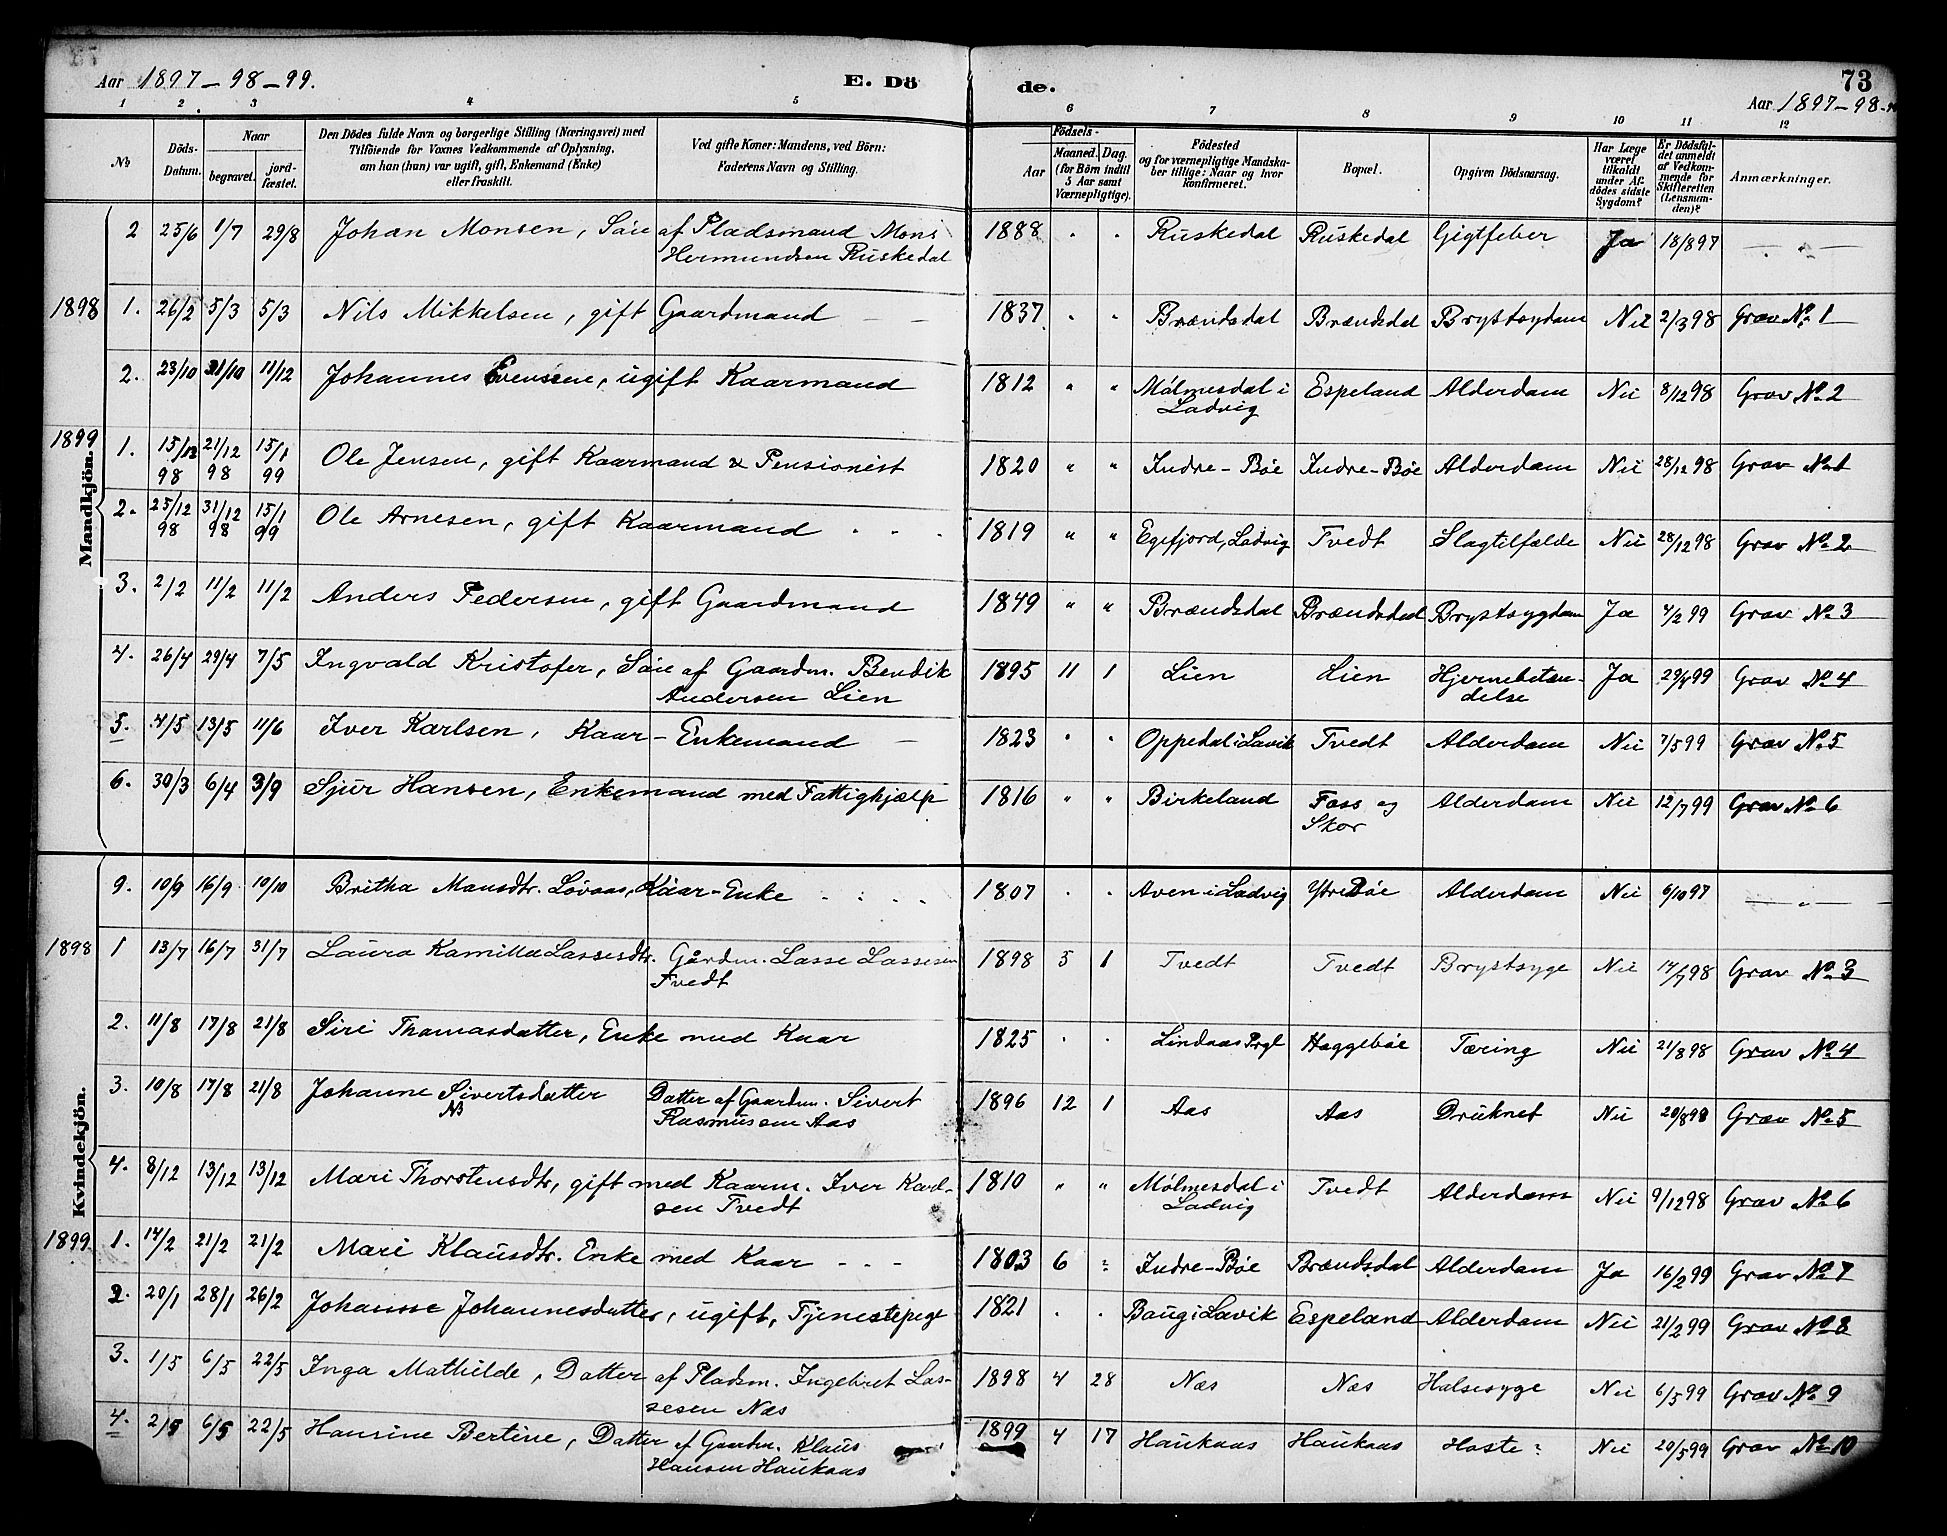 Aar 1897-98-99. E. Dö de. 73
Aar 1897-98-
1 2. 3 4 5 6 7 8 9 10 11 12
No
Döds-Datum.
Naar
begravet.
jord-fæstet.
Den Dödes fulde Navn og borgerlige Stilling (Næringsvei) med
Tilföiende for Voxnes Vedkommende af Oplysning,
om han (hun) var ugift, gift, Enkemand (Enke)
eller fraskilt.
Ved gifte Koner: Mandens, ved Börn:
Faderens Navn og Stilling.
Födsels-
Aar
Maaned. Dag.
(for Börn indtil
5 Aar samt
Værnepligtige).
Födested
og for værnepligtige Mandska-
ber tillige: Naar og hvor
konfirmeret.
Bopæl.
Opgiven Dödsaarsag.
Har Læge
været
tilkaldt
under Af-
dödes sidste
Sygdom?
Er Dödsfal-
det anmeldt
af Vedkom-
mende for
Skifteretten
(Lensman-
den)?
Anmærkninger.
Mandkjön.
2 25/6 1/7 29/8 Johan Monsen, Sön af Pladsmand Mons 1888 . . Ruskedal Ruskedal Gigtfeber Ja 18/897 — „ —
Hermundsen Ruskedal
1898 1. 26/2 5/3 5/3 Nils Mikkelsen, gift Gaardmand — — 1837 . . Brændsdal Brændsdal Brystsygdom Nei 2/398 Grav No 1
2. 23/10 31/10 11/12 Johannes Evensen, ugift Kaarmand 1812 „ „ Mólmesdal i Espeland Alderdom Nei 8/1298 Grav No 2
Ladvig
1899 1. 15/12 21/12 15/1 Ole Jensen, gift Kaarmand & Pensionist 1820 „ „ Indre-Böe Indre-Böe Alderdom Nei 28/1298 Grav No 1
98 98 99
2. 25/12 31/12 15/1 Ole Arnesen, gift Kaarmand . . . 1819 „ „ Egefjord, Ladvig Tvedt Slagtilfælde Nei 28/1298 Grav No 2
98 98 99
3. 2/2 11/2 11/2 Anders Pedersen, gift Gaardmand 1849 „ „ Brændsdal Brændsdal Brystsygdom Ja 4/299 Grav No 3
4. 26/4 29/4 7/5 Ingvald Kristofer, Sön af Gaardm. Bendik 1895 11 1 Lien Lien Hjernebetæn- Ja 29/499 Grav No 4
Andersen Lien delse
5. 4/5 13/5 11/6 Iver Karlsen, Kaar-Enkemand — 1823 . . Oppedal i Lavik Tvedt Alderdom Nei 7/599 Grav No 5
6. 30/3 6/4 3/9 Sjur Hansen, Enkemand med Fattighjælp 1816 „ „ Birkeland Foss og Alderdom Nei 12/799 Grav No 6
Skor
Kvindekjön.
9. 10/9 16/9 10/10 Britha Monsdtr. Lövaas, Kaar-Enke . . . . 1807 . . Aven i Ladvig Ytre Böe Alderdom Nei 6/1097 — „ —
1898 1 13/7 16/7 31/7 Laura Kamilla Lassesdtr. Gårdm. Lasse Lassesen 1898 5 1 Tvedt Tvedt Brystsyge Nei 14/798 Grav No 3
Tvedt
2. 11/8 17/8 21/8 Siri Thomasdatter, Enke med Kaar 1825 . . Lindaas Prgl Haggeböe Tæring Nei 21/898 Grav No 4
3. 10/8 17/8 21/8 Johanne Sivertsdatter Datter af Gaardm. Sivert 1896 12 1 Aas Aas Druknet Nei 20/898 Grav No 5
NB Rasmussen Aas
4. 8/12 13/12 13/12 Mari Thorstensdtr, gift med Kaarm. Iver Karl- 1810 „ „ Mólmesdal i Tvedt Alderdom Nei 9/1298 Grav No 6
sen Tvedt Ladvig
1899. 1. 14/2 21/2 21/2 Mari Klausdtr. Enke med Kaar - - - 1803 6 : Indre-Böe Brændsdal Alderdom Ja 16/299 Grav No 7
2. 20/1 28/1 26/2 Johanne Johannesdatter, ugift, Tjenestepige 1821 . . Baug i Lavik Espeland Alderdom Nei 21/299 Grav No 8
3. 1/5 6/5 22/5 Inga Mathilde, Datter af Pladsm. Ingebret Las- 1898 4 28 Næs Næs Halsesyge Nei 6/599 Grav No 9
sesen Næs
4. 2/5 6/5 22/5 Hansine Bertine, Datter af Gaardm. Klaus 1899 4 17 Haukaas Haukaas Hoste : Nei 20/599 Grav No 10
Hansen Haukaas